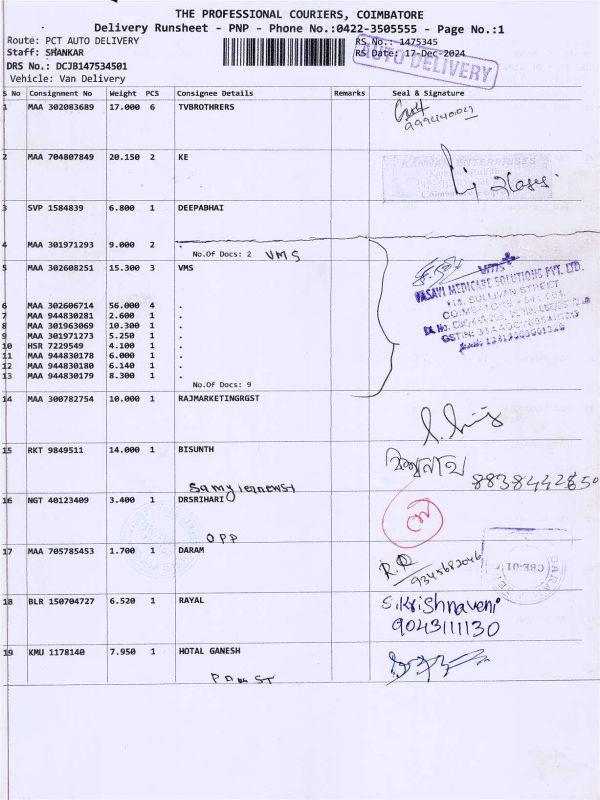 THE PROFESSIONAL COURIERS, COIMBATORE
Delivery Runsheet - PNP - Phone No.:0422-3505555 - Page No.:1
Route: PCT AUTO DELIVERY RS No.: 1475345
Staff: SHANKAR RS Date: 17-Dec-2024
AUTO DELIVERY
DRS No.: DCJB147534501
Vehicle: Van Delivery
S No Consignment No Weight PCS Consignee Details Remarks Seal & Signature
1 MAA 302083689 17.000 6 TVBROTHRERS
2 MAA 704807849 20.150 2 KE
KANNAN ENTERPRISES
3 SVP 1584839 6.800 1 DEEPABHAI
4 MAA 301971293 9.000 2 .
No.Of Docs: 2 VMS
5 MAA 302608251 15.300 3 VMS
VASAVI MEDICARE SOLUTIONS PVT. LTD.
SULLIVAN STREET
6 MAA 302606714 56.000 4 .
7 MAA 944830281 2.600 1 .
8 MAA 301963069 10.300 1 .
9 MAA 301971273 5.250 1 .
10 HSR 7229549 4.100 1 .
11 MAA 944830178 6.000 1 .
12 MAA 944830180 6.140 1 .
13 MAA 944830179 8.300 1 .
No.Of Docs: 9
14 MAA 300782754 10.000 1 RAJMARKETINGRGST
15 RKT 9849511 14.000 1 BISUNTH
16 NGT 40123409 3.400 1 DRSRIHARI
OPP
17 MAA 705785453 1.700 1 DARAM
R.R
9345682046
CBE-01
18 BLR 150704727 6.520 1 RAYAL
S.Krishnaveni
9043111130
19 KMU 1178140 7.950 1 HOTAL GANESH